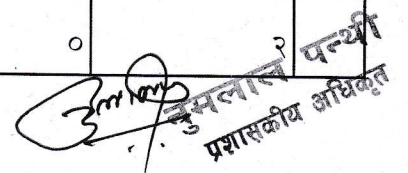 ० २
डुमलाल पन्थी
प्रशासकीय अधिकृत